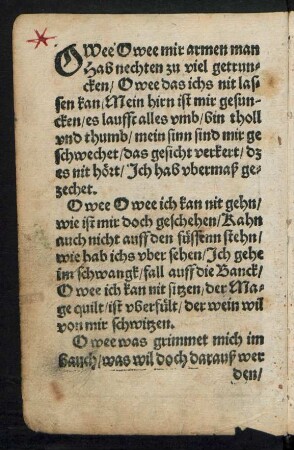 O Wee O wee mir armen man
Hab nechten zu viel getrun-
cken/ O wee das ichs nit las-
sen kan/ Mein hirn ist mir gesun-
cken/ es laufft alles vmb/ bin tholl
vnd thumb/ mein sinn sind mir ge
schwechet/ das gesicht verkert/ dz
es nit hört/ Ich hab vbermaß ge-
zechet.
O wee O wee ich kan nit gehn/
wie ist mir doch geschehen/ Kahn
auch nicht auff den füssenn stehn/
wie hab ichs vber sehen/ Ich gehe
im schwangk/ fall auff die Banck/
O wee ich kan nit sitzen/ der Ma-
ge quilt/ ist vberfült/ der wein wil
von mir schwitzen.
O wee was grimmet mich im
Bauch/ was wil doch darauß wer
den/